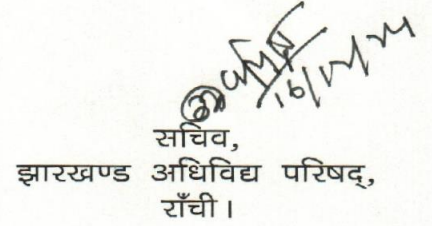 16/12/24
सचिव,
झारखण्ड अधिविद्य परिषद्,
राँची।